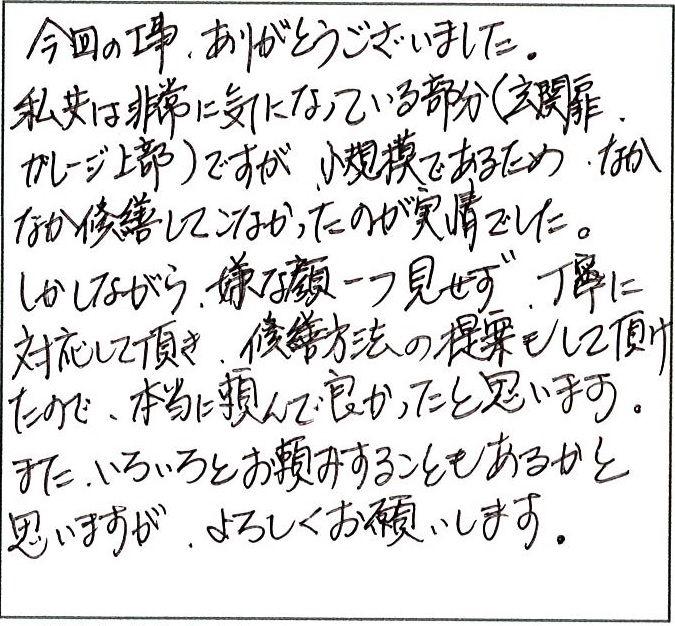 今回の工事、ありがとうございました。
私共は非常に気になっている部分(玄関扉、
ガレージ上部)ですが、小規模であるため、なか
なか修繕してこなかったのが実情でした。
しかしながら、嫌な顔一つ見せず、丁寧に
対応して頂き、修繕方法の提案もして頂け
たので、本当に頼んで良かったと思います。
また、いろいろとお頼みすることもあるかと
思いますが、よろしくお願いします。